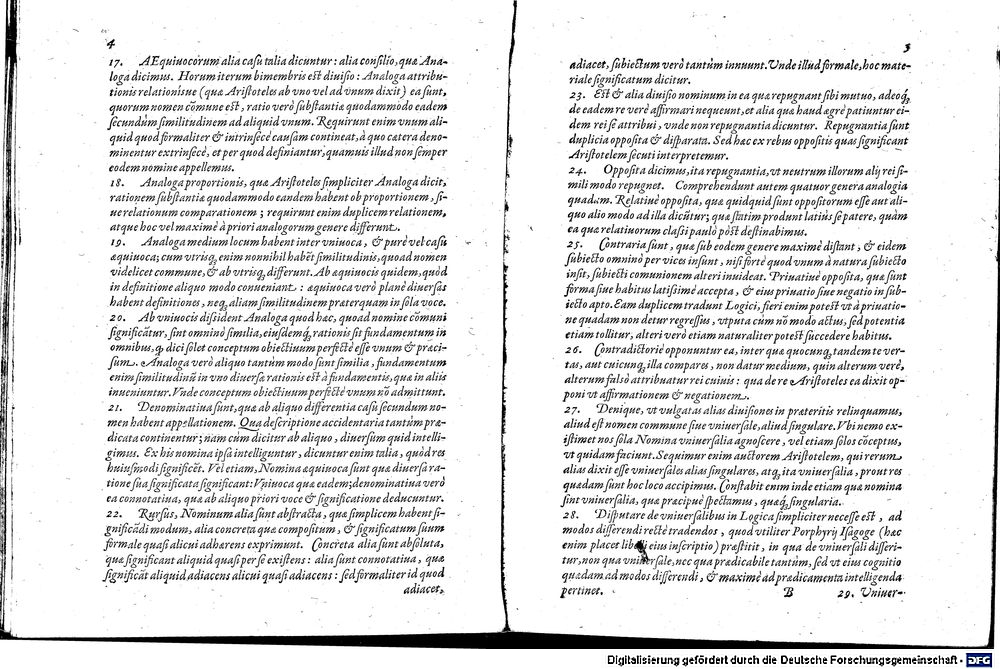 4
17. AEquiuocorum alia casu talia dicuntur: alia consilio, quæ Ana-
loga dicimus. Horum iterum bimembris est diuisio: Analoga attribu-
tionis relationisue (quæ Aristoteles ab vno vel ad vnum dixit) ea sunt,
quorum nomen cōmune est, ratio verò substantiæ quodammòdo eadem
secundùm similitudinem ad aliquid vnum. Requirunt enim vnum ali-
quid quod formaliter & intrinsecè causam contineat, à quo cætera deno-
minentur extrinsecè, et per quod definiantur, quamuis illud non semper
eodem nomine appellemus.
18. Analoga proportionis, quæ Aristoteles simpliciter Analoga dicit,
rationem substantiæ quodammodo eandem habent ob proportionem, si-
ue relationum comparationem; requirunt enim duplicem relationem,
atque hoc vel maximè à priori analogorum genere differunt.
19. Analoga medium locum habent inter vniuoca, & purè vel casu
æquiuoca; cum vtrisq, enim nonnihil habēt similitudinis, quoad nomen
videlicet commune, & ab vtrisq, differunt. Ab æquiuocis quidem, quòd
in definitione aliquo modo conueniant: æquiuoca verò planè diuersas
habent definitiones, neq, aliam similitudinem præterquam in sola voce.
20. Ab vniuocis dissident Analoga quod hæc, quoad nomine cōmuni
significātur, sint omninò similia, eiusdemq, rationis sit fundamentum in
omnibus, q dici solet conceptum obiectiuum perfectè esse vnum & præci-
sum. Analoga verò aliquo tantùm modo sunt similia, fundamentum
enim similitudinū in vno diuersæ rationis est à fundamentis, quæ in aliis
inueniuntur. Vnde conceptum obiectiuum perfectè vnum nō admittunt.
21. Denominatiua sunt, quæ ab aliquo differentia casu secundum no-
men habent appellationem. Qua descriptione accidentaria tantùm præ-
dicata continentur; nam cùm dicitur ab aliquo, diuersum quid intelli-
gimus. Ex his nomina ipsa intelliguntur, dicuntur enim talia, quòd res
huiusmodi significēt. Vel etiam, Nomina æquiuoca sunt quæ diuersa ra-
tione sua significata significant: Vniuoca quæ eadem; denominatiua verò
ea connotatiua, quæ ab aliquo priori voce & significatione deducuntur.
22. Rursus, Nominum alia sunt abstracta, quæ simplicem habent si-
gnificādi modum, alia concreta quæ compositum, & significatum suum
formale quasi alicui adhærens exprimunt. Concreta alia sunt absoluta,
quæ significant aliquid quasi per se existens: alia sunt connotatiua, quæ
significāt aliquid adiacens alicui quasi adiacens: sed formaliter id quod
adiacet,
3
adiacet, subiectum verò tantùm innuunt. Vnde illud formale, hoc mate-
riale significatum dicitur.
23. Est & alia diuisio nominum in ea quæ repugnant sibi mutuo, adeoq,
de eadem re verè affirmari nequeunt, et alia quæ haud ægrè patiuntur ei-
dem rei se attribui, vnde non repugnantia dicuntur. Repugnantia sunt
duplicia opposita & disparata. Sed hæc ex rebus oppositis quas significant
Aristotelem secuti interpretemur.
24. Opposita dicimus, ita repugnantia, vt neutrum illorum alij rei si-
mili modo repugnet. Comprehendunt autem quatuor genera analogia
quadam. Relatiuè opposita, quæ quidquid sunt oppositorum esse aut ali-
quo alio modo ad illa dicūtur; quæ statim produnt latiùs se patere, quàm
ea quæ relatiuorum classi paulò pòst destinabimus.
25. Contraria sunt, quæ sub eodem genere maximè distant, & eidem
subiecto omninò per vices insunt, nisi fortè quod vnum à natura subiecto
insit, subiecti comunionem alteri inuideat. Priuatiuè opposita, quæ sunt
forma siue habitus latissimè accepta, & eius priuatio siue negatio in sub-
iecto apto. Eam duplicem tradunt Logici, fieri enim potest vt à priuatio-
ne quadam non detur regressus, vtputa cùm nō modo actus, sed potentia
etiam tollitur, alteri verò etiam naturaliter potest succedere habitus.
26. Contradictoriè opponuntur ea, inter quæ quocunq, tandem te ver-
tas, aut cuicunq, illa compares, non datur medium, quin alterum verè,
alterum falsò attribuatur rei cuiuis: qua de re Aristoteles ea dixit op-
poni vt affirmationem & negationem.
27. Denique, vt vulgatas alias diuisiones in præteritis relinquamus,
aliud est nomen commune siue vniuersale, aliud singulare. Vbi nemo ex-
istimet nos sola Nomina vniuersalia agnoscere, vel etiam solos cōceptus,
vt quidam faciunt. Sequimur enim auctorem Aristotelem, qui rerum
alias dixit esse vniuersales alias singulares, atq, ita vniuersalia, prout res
quædam sunt hoc loco accipimus. Constabit enim inde etiam quæ nomina
sint vniuersalia, quæ præcipuè spectamus, quæq, singularia.
28. Disputare de vniuersalibus in Logica simpliciter necesse est, ad
modos differendi rectè tradendos, quod vtiliter Porphyrij Isagoge (hæc
enim placet eius inscriptio) præstitit, in qua de vniuersali disseri-
tur, non qua vniuersale, nec qua prædicabile tantùm, sed vt eius cognitio
quædam ad modos differendi, & maximè ad prædicamenta intelligenda
pertinet.
B 29. Vniuer-
Digitalisierung gefördert durch die Deutsche Forschungsgemeinschaft - DFG